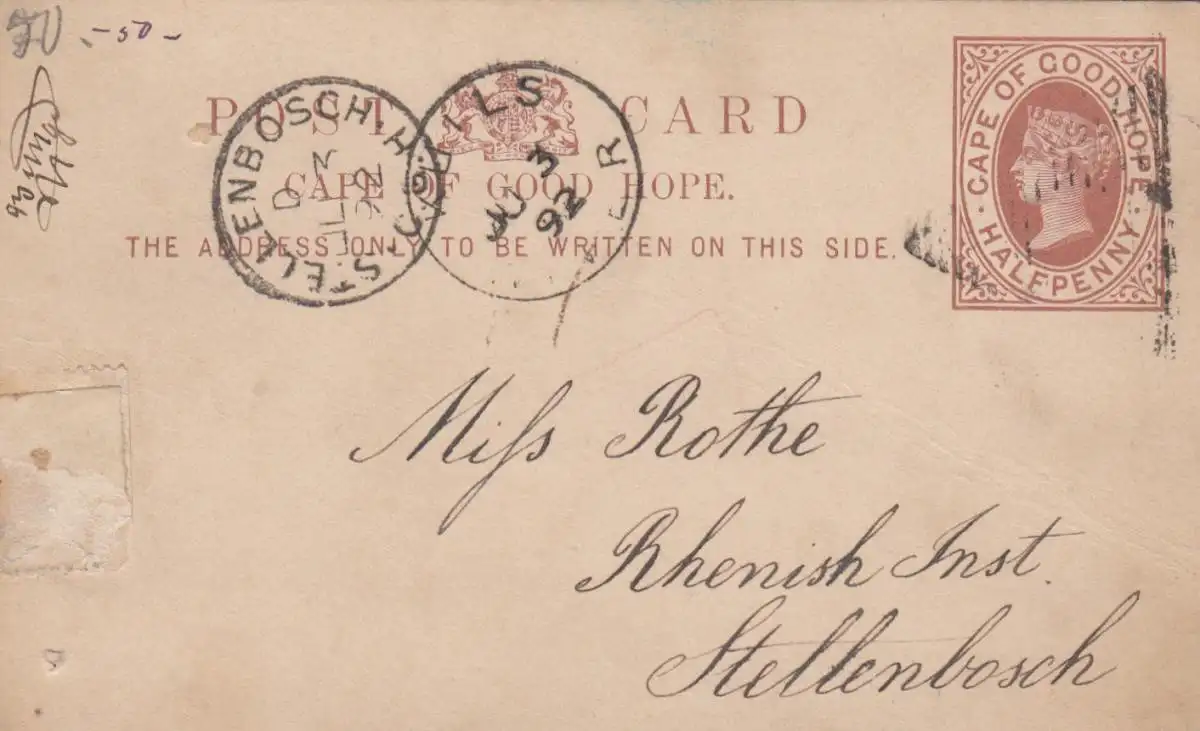 -50-
POST CARD
CAPE OF GOOD HOPE.
THE ADDRESS ONLY TO BE WRITTEN ON THIS SIDE.
CAPE OF GOOD HOPE
HALFPENNY
STELLENBOSCH. C.G.H
D
JL 3
92
ILS
3
92
R
Miſs Rothe
Rhenish Inst.
Stellenbosch